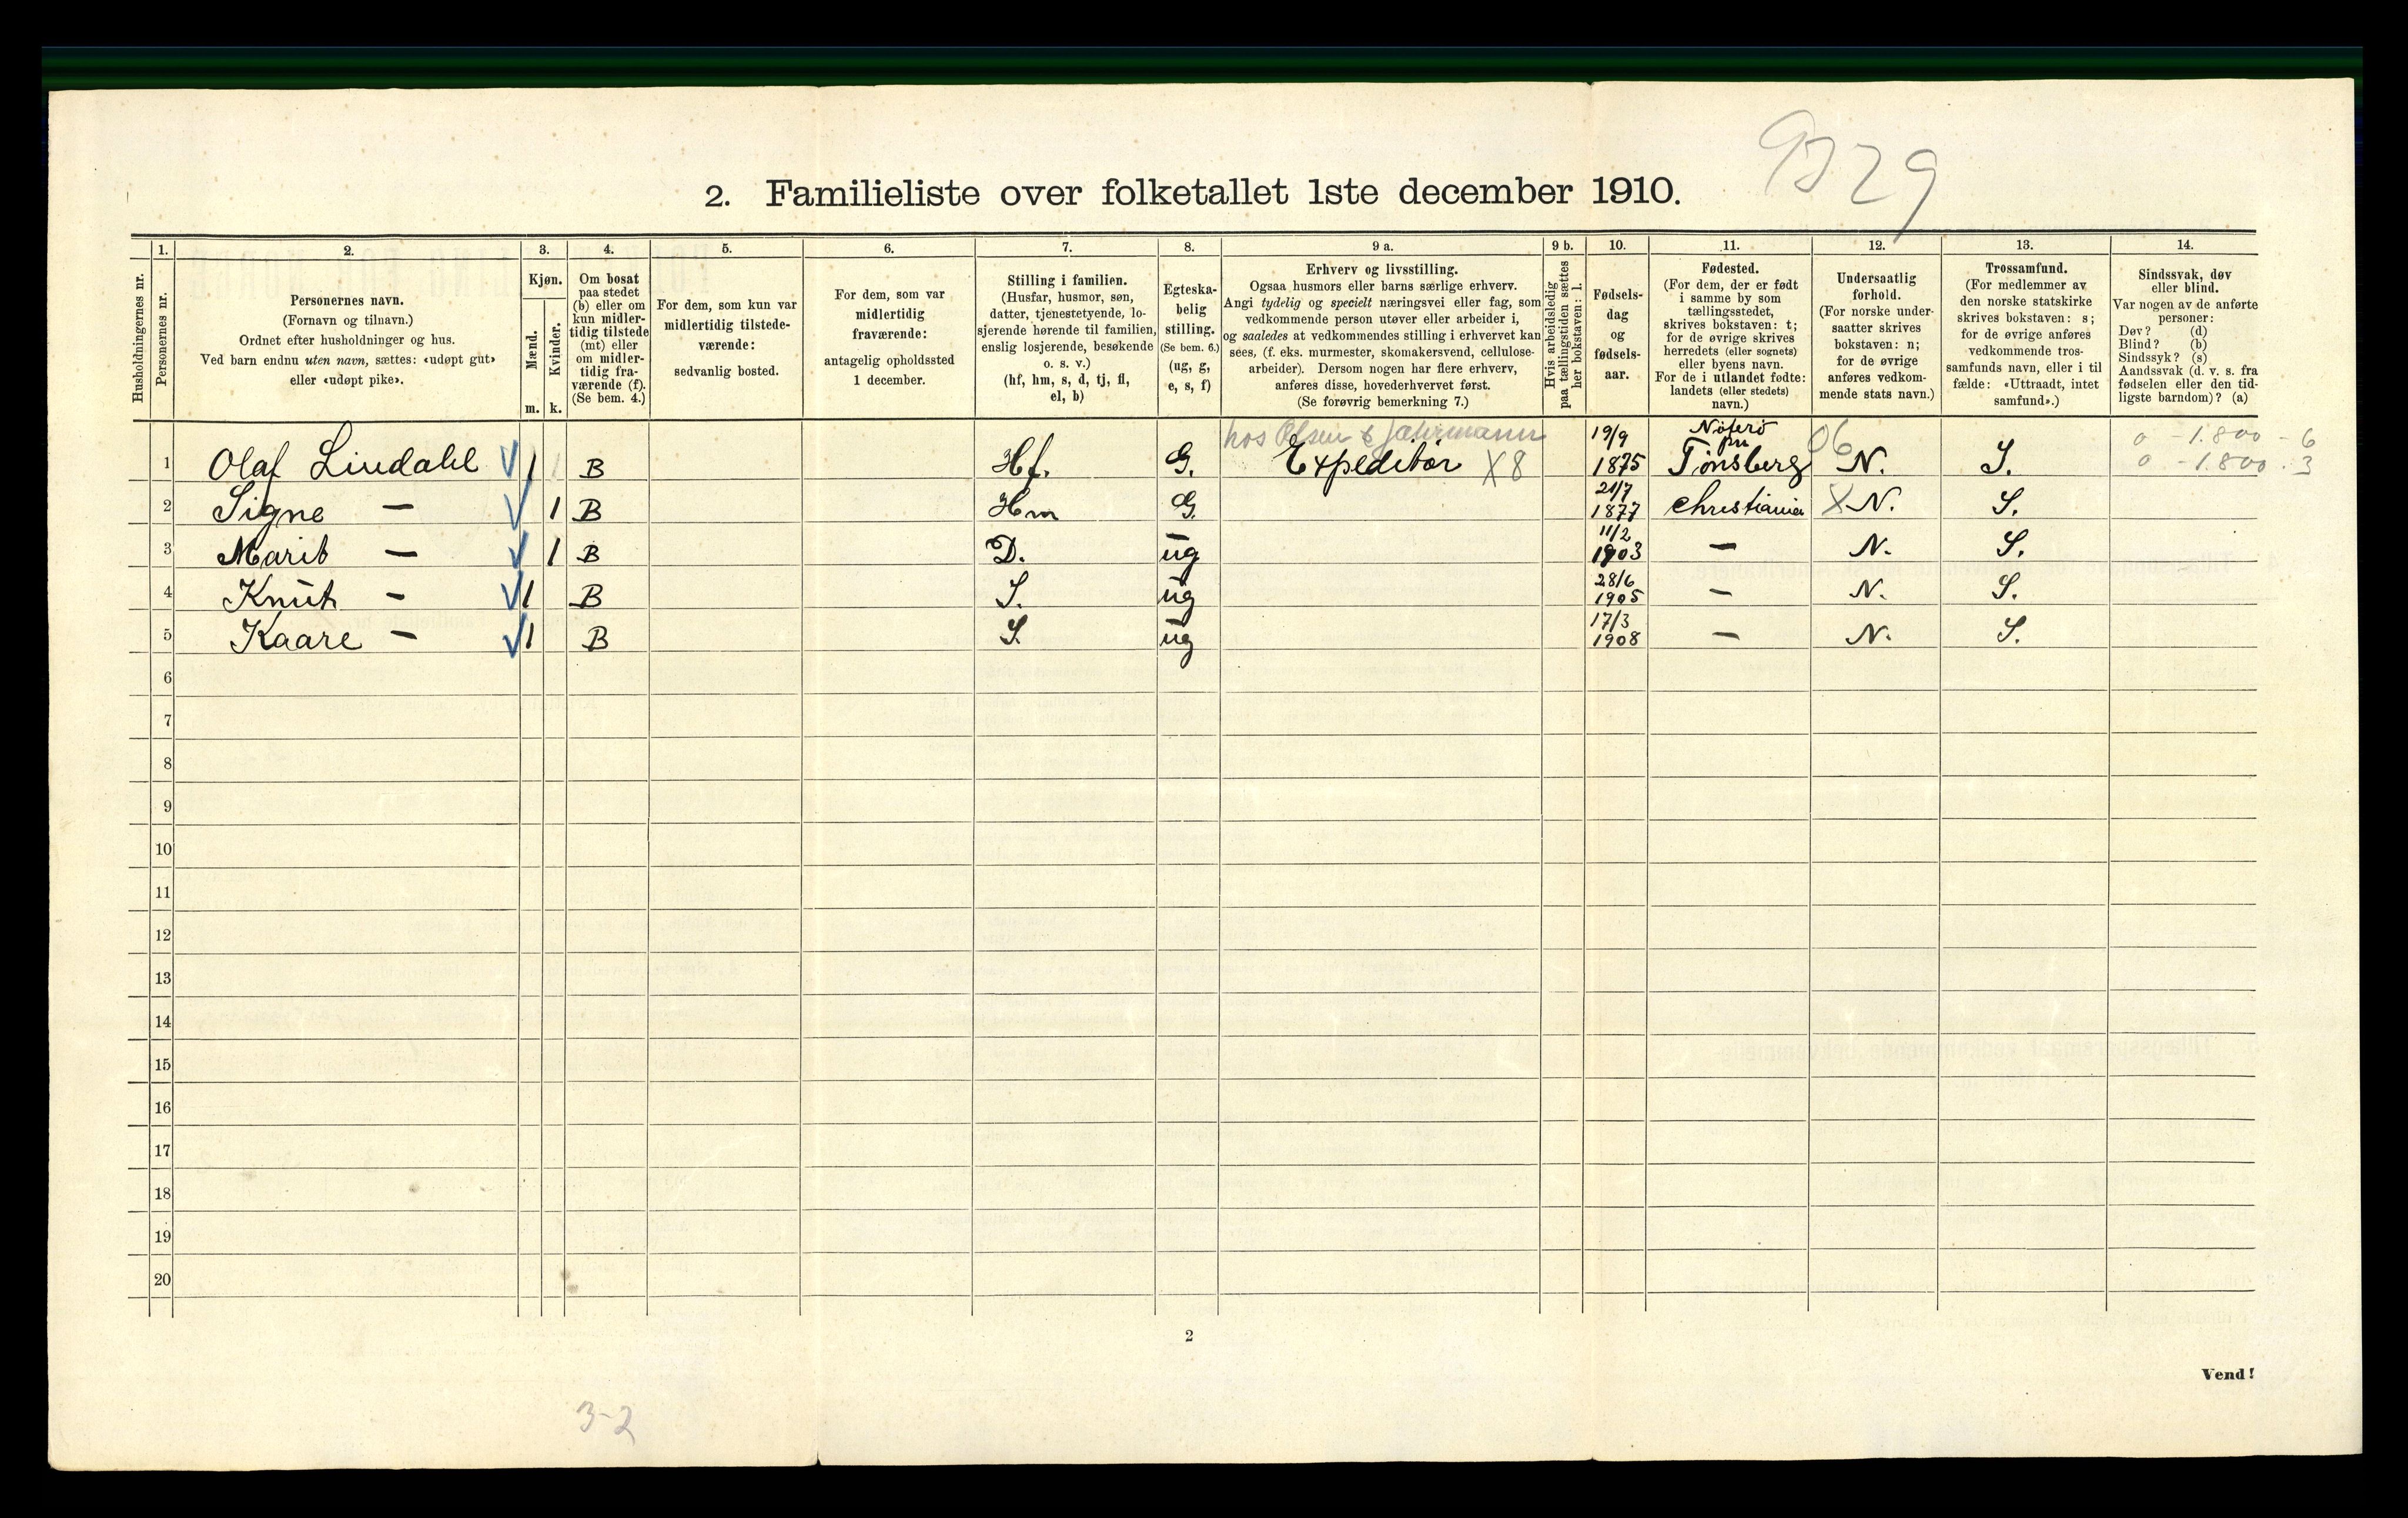 9329
2. Familieliste over folketallet 1ste december 1910.
Husholdningernes nr.
1. Personernes nr.
2. Personernes navn.
(Fornavn og tilnavn.)
Ordnet efter husholdninger og hus.
Ved barn endnu uten navn, sættes: «udøpt gut»
eller «udøpt pike».
3. Kjøn.
Mænd. Kvinder.
m. k.
4. Om bosat
paa stedet
(b) eller om
kun midler-
tidig tilstede
(mt) eller
om midler-
tidig fra-
værende (f).
(Se bem. 4.)
5. For dem, som kun var
midlertidig tilstede-
værende:
sedvanlig bosted.
6. For dem, som var
midlertidig
fraværende:
antagelig opholdssted
1 december.
7. Stilling i familien.
(Husfar, husmor, søn,
datter, tjenestetyende, lo-
sjerende hørende til familien,
enslig losjerende, besøkende
o. s. v.)
(hf, hm, s, d, tj, fl,
el, b)
8. Egteska-
belig
stilling.
(Se bem. 6.)
(ug, g,
e, s, f)
9 a. Erhverv og livsstilling.
Ogsaa husmors eller barns særlige erhverv.
Angi tydelig og specielt næringsvei eller fag, som
vedkommende person utøver eller arbeider i,
og saaledes at vedkommendes stilling i erhvervet kan
sees, (f. eks. murmester, skomakersvend, cellulose-
arbeider). Dersom nogen har flere erhverv,
anføres disse, hovederhvervet først.
(Se forøvrig bemerkning 7.)
9 b. Hvis arbeidsledig
paa tællingstiden sættes
her bokstaven: l.
10. Fødsels-
dag
og
fødsels-
aar.
11. Fødested.
(For dem, der er født
i samme by som
tællingsstedet,
skrives bokstaven: t;
for de øvrige skrives
herredets (eller sognets)
eller byens navn.
For de i utlandet fødte:
landets (eller stedets)
navn.)
12. Undersaatlig
forhold.
(For norske under-
saatter skrives
bokstaven: n;
for de øvrige
anføres vedkom-
mende stats navn.)
13. Trossamfund.
(For medlemmer av
den norske statskirke
skrives bokstaven: s;
for de øvrige anføres
vedkommende tros-
samfunds navn, eller i til
fælde: «Uttraadt, intet
samfund».)
14. Sindssvak, døv
eller blind.
Var nogen av de anførte
personer:
Døv? (d)
Blind? (b)
Sindssyk? (s)
Aandssvak (d. v. s. fra
fødselen eller den tid-
ligste barndom)? (a)
hos Olsen & Jahrmann 19/9 Nøterø 06 0 - 1.800 - 6
1 Olaf Lindahl 1 B Hf. G. Expeditør X8 1875 Tønsberg N. S. 0 - 1.800 . 3
2 Signe — 1 B Hm G. 21/7 1877 Christiania X N. S.
3 Marit — 1 B D. ug 11/2 1903 — N. S.
4 Knut — 1 B S. ug 28/6 1905 — N. S.
5 Kaare — 1 B S. ug 17/3 1908 — N. S.
6
7
8
9
10
11
12
13
14
15
16
17
18
19
20
2
Vend!
3-2